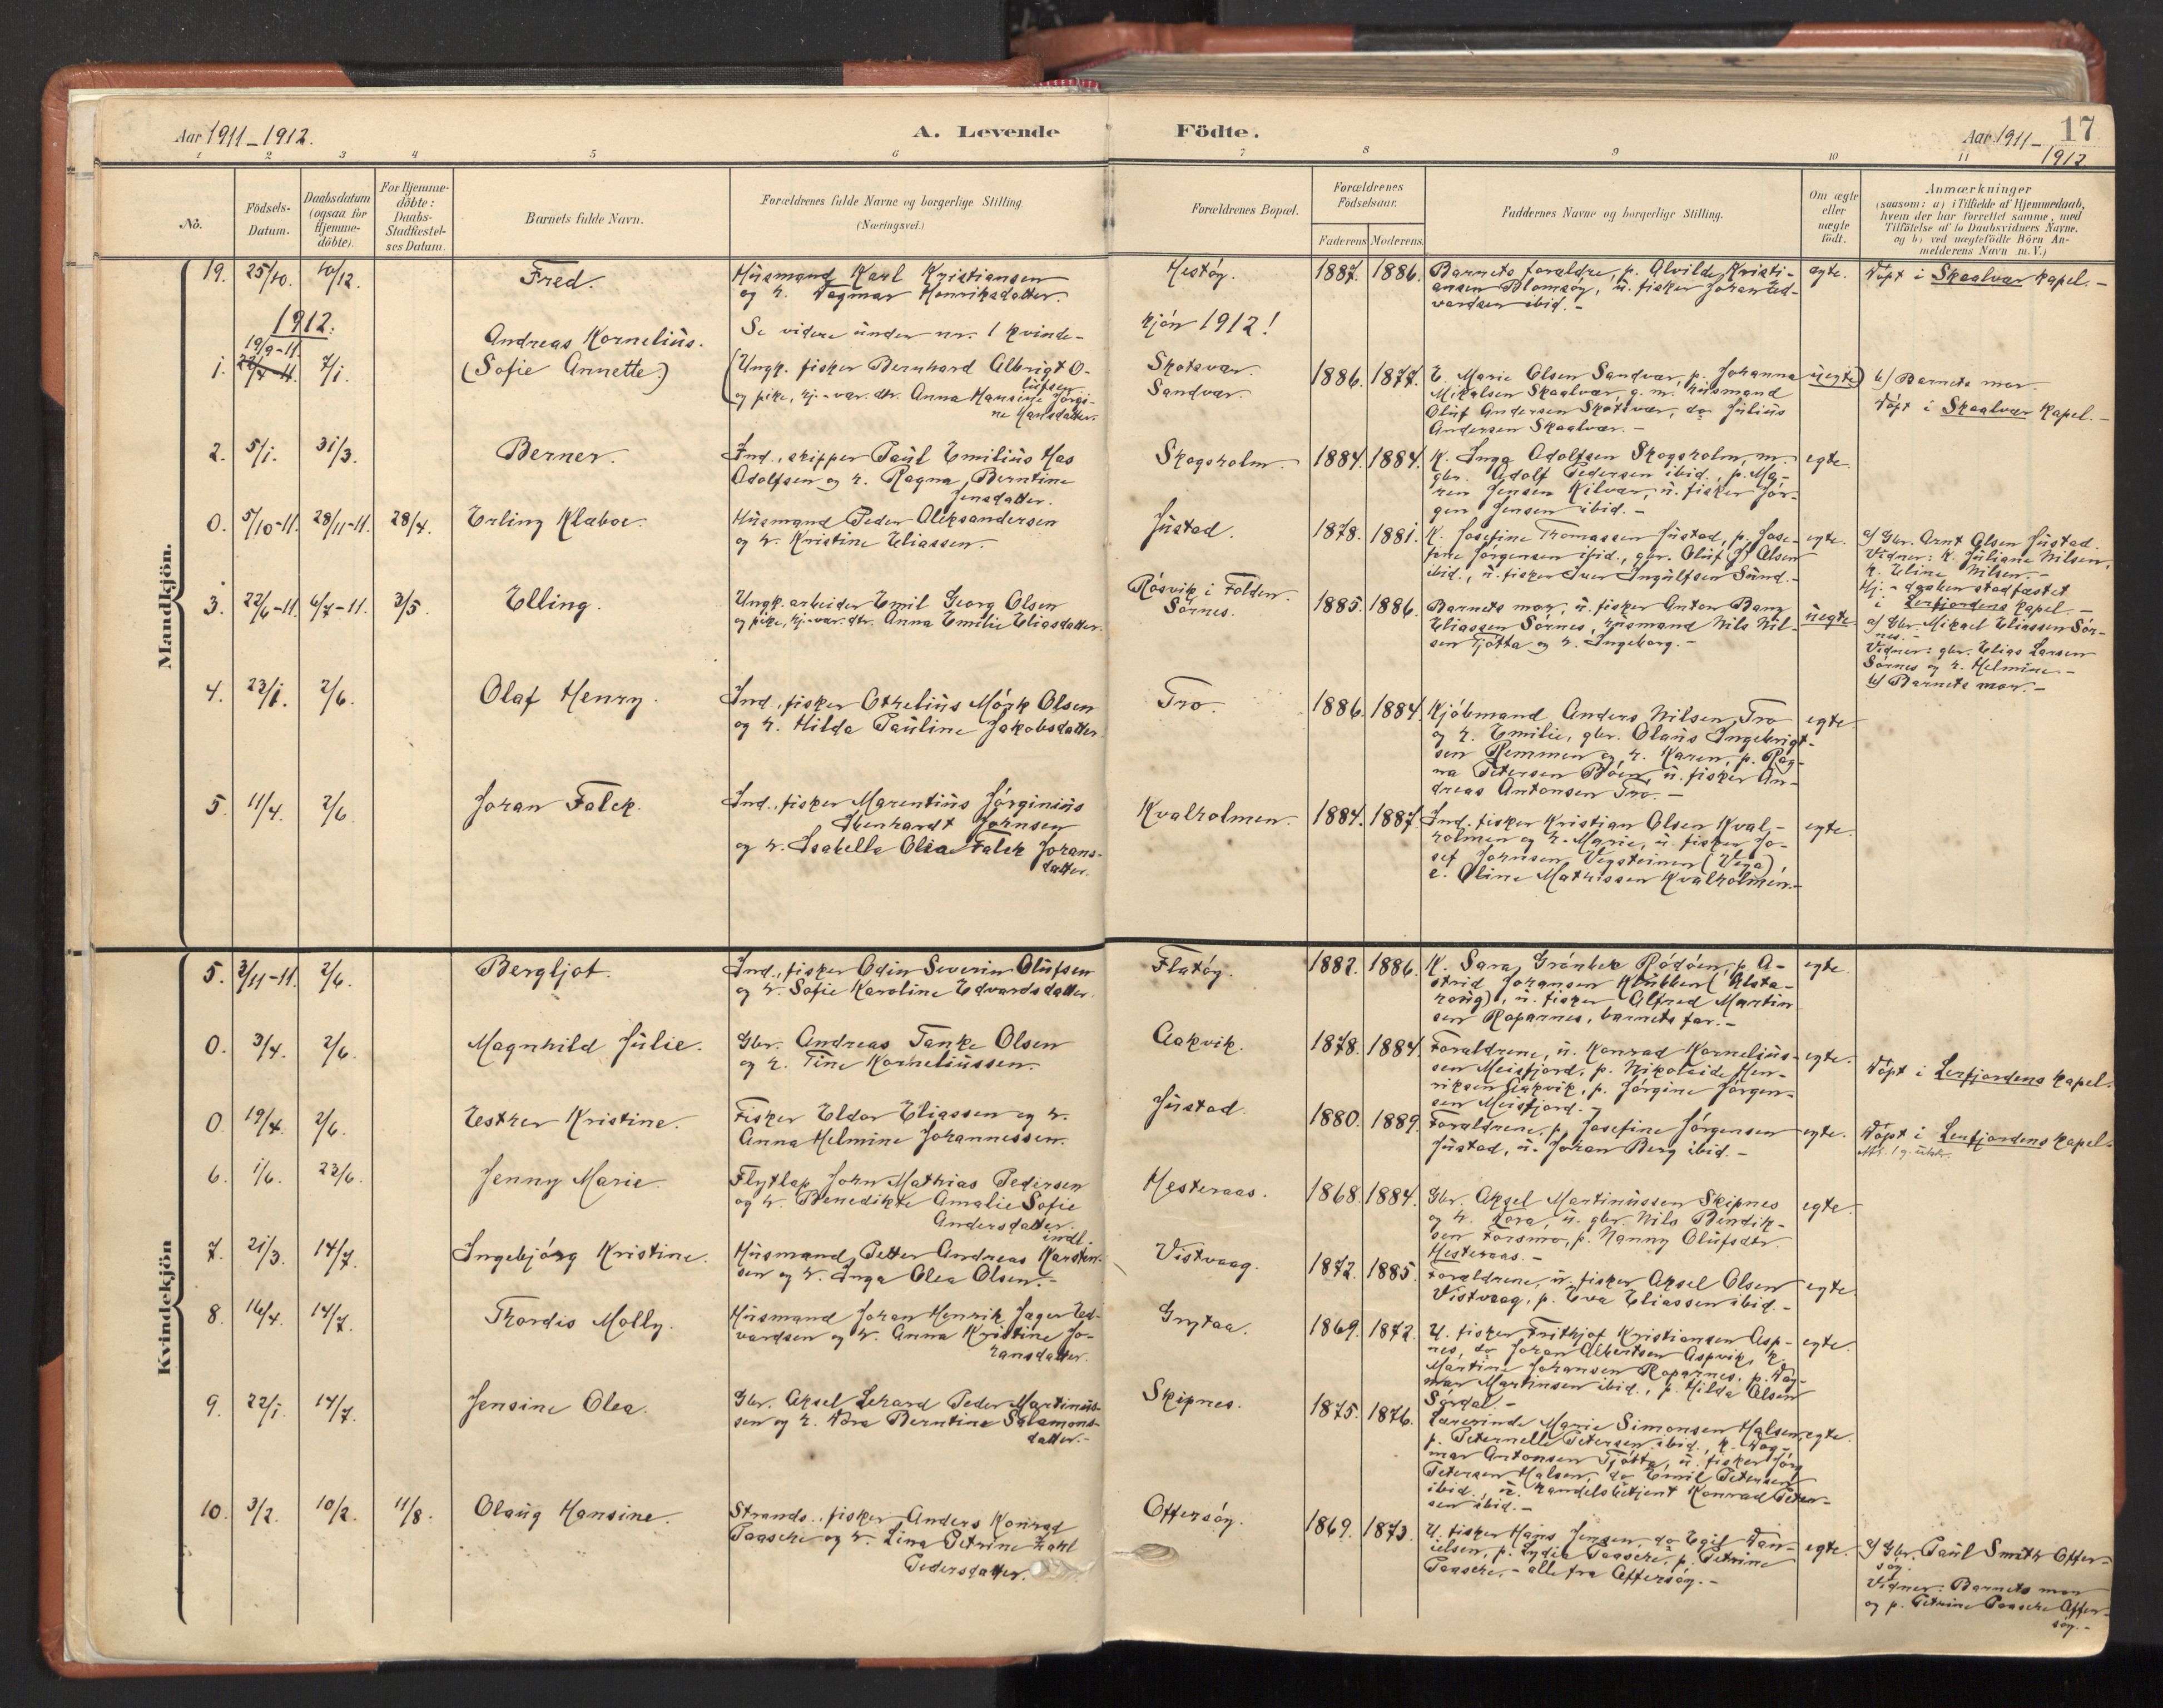 Aar 1911-1912.
A. Levende Födte.
Aar 1911-1912
17
1 2 3 4 5 6 7 8 9 10 11
No.
Födsels-Datum.
Daabsdatum (ogsaa for Hjemme-döbte).
For Hjemme-döbte: Daabs-Stadfæstel-ses Datum.
Barnets fulde Navn.
Forældrenes fulde Navne og borgerlige Stilling (Næringsvei.)
Forældrenes Bopæl.
Forældrenes Födselsaar.
Faderens Moderens
Faddernes Navne og borgerlige Stilling.
Om ægte eller uægte födt.
Anmærkninger
(saasom: a) i Tilfælde af Hjemmedaab,
hvem der har forrettet samme, med
Tilföielse af to Daabsvidners Navne.
og b) ved uægtefödte Börn An-
melderens Navn m. V.)
Mandkjön.
19. 25/10. 10/12. Fred.
Husmand Karl Kristiansen
og h. Dagmar Henriksdatter.
Hestöy. 1887. 1886.
Barnets foraldre, p. Alvilde Kristi-
ansen Blomsöy, u. fisker Johan Ed-
vardsen ibid. -
egte. Döpt i Skaalvær kapel. -
1912.
Andreas Kornelius. Se videre under nr. 1 kvinde-
kjön 1912!
1. 19/9-11. 7/1. (Sofie Annette)
(Ungk. fisker Bernhard Albrigt O-
lufsen
og pike, hj.-vær. dtr. Anna Hansine Jörgi-
ne Hansdatter.
Skotsvær.
Sandvær.
1886. 1877.
E. Marie Olsen Sandvær, p. Johanna
Mikalsen Skaalvær, g. m. husmand
Oluf Andersen Skotsvær, do Julius
Andersen Skaalvær. -
uegte) b) Barnets mor.
Döpt i Skaalvær kapel. -
2. 5/1. 31/3. Berner.
Ind., skipper Paul Emilius Has
Adolfsen og h. Ragna Berntine
Jensdatter.
Skogsholm. 1884. 1884.
K. Inga Adolfsen Skogsholm, m.
gbr. Adolf Pedersen ibid., p. Ma-
ren Jensen Kilvær, u. fisker Jör-
gen Jensen ibid. -
egte.
0. 5/10-11. 28/11-11. 28/4. Erling Klæboe.
Husmand Peder Aleksandersen
og h. Kristine Eliassen.
Justad. 1878. 1881.
K. Josefine Thomassen Justad, p. Jose-
fine Jörgensen ibid., gbr. Oluf Olsen
ibid., u. fisker Iver Ingulfsen Sund. -
egte. a) Gbr. Arnt Olsen Justad.
Vidner: k. Juliane Nilsen,
k. Eline Nilsen. -
Hj.-daaben stadfæstet
i Leirfjordens kapel. -
3. 22/6-11. 6/7-11. 3/5. Elling.
Ungk. arbeider Emil Georg Olsen
og pike, hj.-vær. dtr. Anna Emilie Eliasdatter.
Rösvik i Folden.
Sörnes.
1885. 1886.
Barnets mor, u. fisker Anton Bang
Eliassen Sörnes, husmand Nils Nil-
sen Tjötta og h. Ingeborg. -
uegte. a) Gbr. Mikael Eliassen Sör-
nes. -
Vidner: gbr. Elias Larsen
Sörnes og h. Helmine. -
b) Barnets mor. -
4. 23/1. 2/6. Olaf Henry.
Ind., fisker Othelius Mörk Olsen
og h. Hilda Pauline Jakobsdatter.
Tro. 1886. 1884.
Kjöbmand Anders Nilsen Tro
og h. Emilie, gbr. Olaus Ingebrigt-
sen Remmen og h. Karen, p. Rag-
na Petersen Böen, u. fisker An-
dreas Antonsen Tro. -
egte.
5. 11/4. 2/6. Johan Falck.
Ind., fisker Marentius Jörginius
Ibenhardt Johnsen
og h. Isabella Olea Falck Johans-
datter.
Kvalholmen. 1884. 1887.
Ind. fisker Kristian Olsen Kval-
holmen og h. Marie, u. fisker Jo-
sef Johnsen Vegsteinen (Vega),
e. Oline Mathissen Kvalholmen. -
egte.
Kvindekjön
5. 3/11-11. 2/6. Bergljot.
Ind., fisker Edin Severin Olufsen
og h. Sofie Karoline Edvardsdatter.
Flatöy. 1882. 1886.
K. Sara Grönbek Rödöen, p. A-
strid Johansen Klubben (Alsta-
houg), u. fisker Alfred Martin-
sen Roparnes, barnets far. -
egte.
0. 3/4. 2/6. Magnhild Julie.
Gbr. Andreas Tanke Olsen
og h. Tine Korneliussen.
Aakvik. 1878. 1884.
Foraldrene, u. Konrad Kornelius-
sen Meisfjord, p. Nikolaide Hen-
riksen Aakvik, p. Jörgine Jörgen-
sen Meisfjord. -
egte. Döpt i Leirfjordens kapel.
0. 19/4. 2/6. Esther Kristine.
Fisker Eldor Eliassen og h.
Anna Helmine Johannessen.
Justad. 1880. 1889.
Foraldrene, p. Josefine Jörgensen
Justad, u. Johan Berg ibid. -
egte. Döpt i Leirfjordens kapel.
6. 1/6. 23/6. Jenny Marie.
Flytlap John Mathias Pedersen
og h. Benedikte Amalie Sofie
Andersdatter.
Hesteraas. 1868. 1884.
Gbr. Aksel Martinussen Skipnes
og h. Dora, u. gbr. Nils Bendik-
sen Forsmo, p. Nanny Olufsdtr
Hesteraas. -
egte.
7. 21/3. 14/7. Ingebjörg Kristine.
indl.
Husmand Petter Andreas Karsten-
sen og h. Inga Olea Olsen. -
Vistvaag. 1872. 1885.
Foraldrene, u. fisker Aksel Olsen
Vistvaag, p. Eva Eliassen ibid. -
egte.
8. 16/4. 14/7. Thordis Molly.
Husmand Johan Henrik Jager Ed-
vardsen og h. Anna Kristine Jo-
hansdatter.
Grytaa. 1869. 1872.
U. fisker Frithjof Kristiansen Asp-
nes, do Johan Albertsen Aspvik, k.
Martine Johansen Roparnes, p. Dag-
mar Martinsen ibid., p. Hilda Olsen
Sördal. -
egte.
9. 22/1. 14/7. Jensine Olea.
Gbr. Aksel Lehard Peder Martinus-
sen og h. Dora Berntine Salamons-
datter. -
Skipnes. 1875. 1876.
Lærerinde Marie Simonsen Halsen,
p. Peternelle Petersen ibid., k. Dag-
mar Antonsen Tjötta, u. fisker Jörg
Petersen Halsen, do Emil Petersen
ibid., u. handelsbetjent Konrad Peter-
sen ibid. -
egte.
10. 3/2. 10/2. 11/8. Olaug Hansine.
Strands., fisker Anders Konrad
Paasche og h. Lina Petrine Zahl
Pedersdatter.
Offersöy. 1869. 1873.
U. fisker Hans Jensen, do Egil Dan-
ielsen, p. Lydia Paasche, p. Petrine
Paasche, - alle fra Offersöy. -
egte. a) Gbr. Paul Smith Offer-
söy.
Vidner: Barnets mor
og p. Petrine Paasche Offer-
söy. -